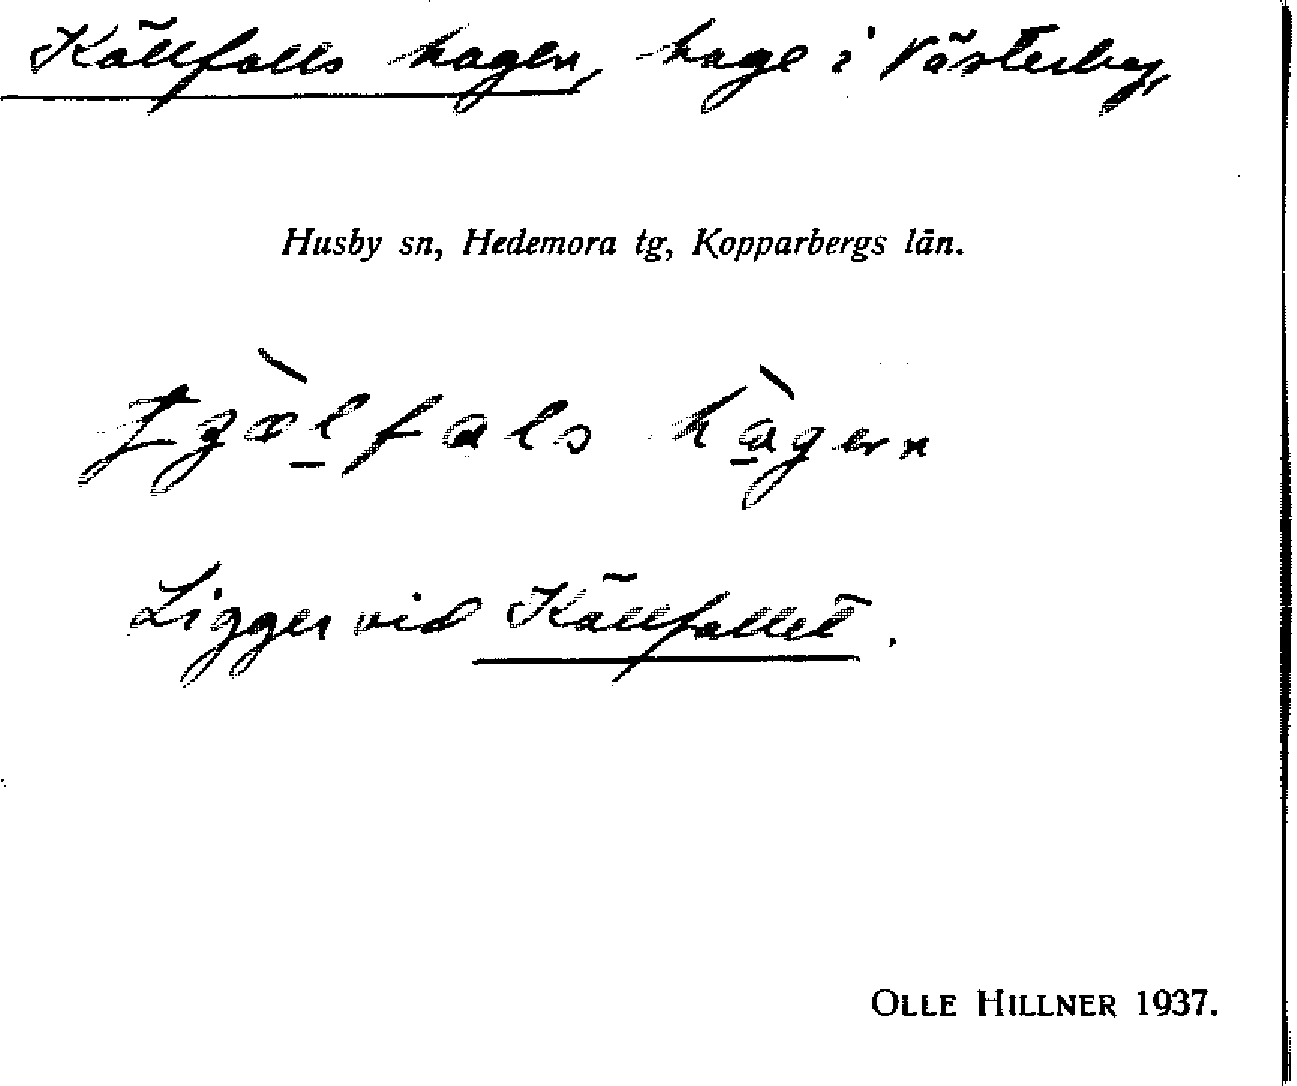 Källfalls hagen, hage i Västerby,
Husby sn, Hedemora tg, Kopparbergs län.
hàgen
Ligger vid Källfallet.
OLLE HILLNER 1937.